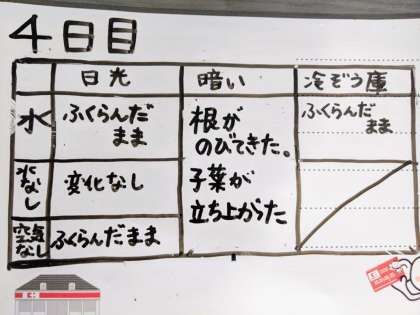 4日目
日光 暗い 冷ぞう庫
水 ふくらんだまま 根がのびてきた。子葉が立ち上がった ふくらんだまま
水なし 変化なし
空気なし ふくらんだまま